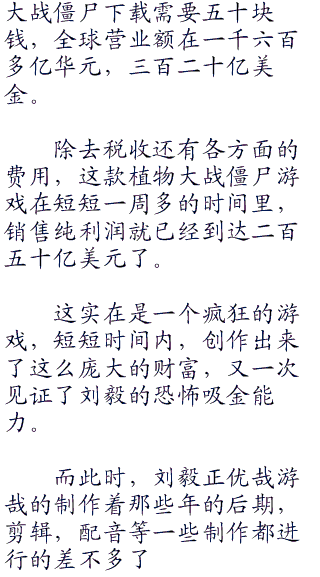 大战僵尸下载需要五十块
钱，全球营业额在一千六百
多亿华元，三百二十亿美
金。
除去税收还有各方面的
费用，这款植物大战僵尸游
戏在短短一周多的时间里，
销售纯利润就已经到达二百
五十亿美元了。
这实在是一个疯狂的游
戏，短短时间内，创作出来
了这么庞大的财富，又一次
见证了刘毅的恐怖吸金能
力。
而此时，刘毅正优哉游
哉的制作着那些年的后期，
剪辑，配音等一些制作都进
行的差不多了